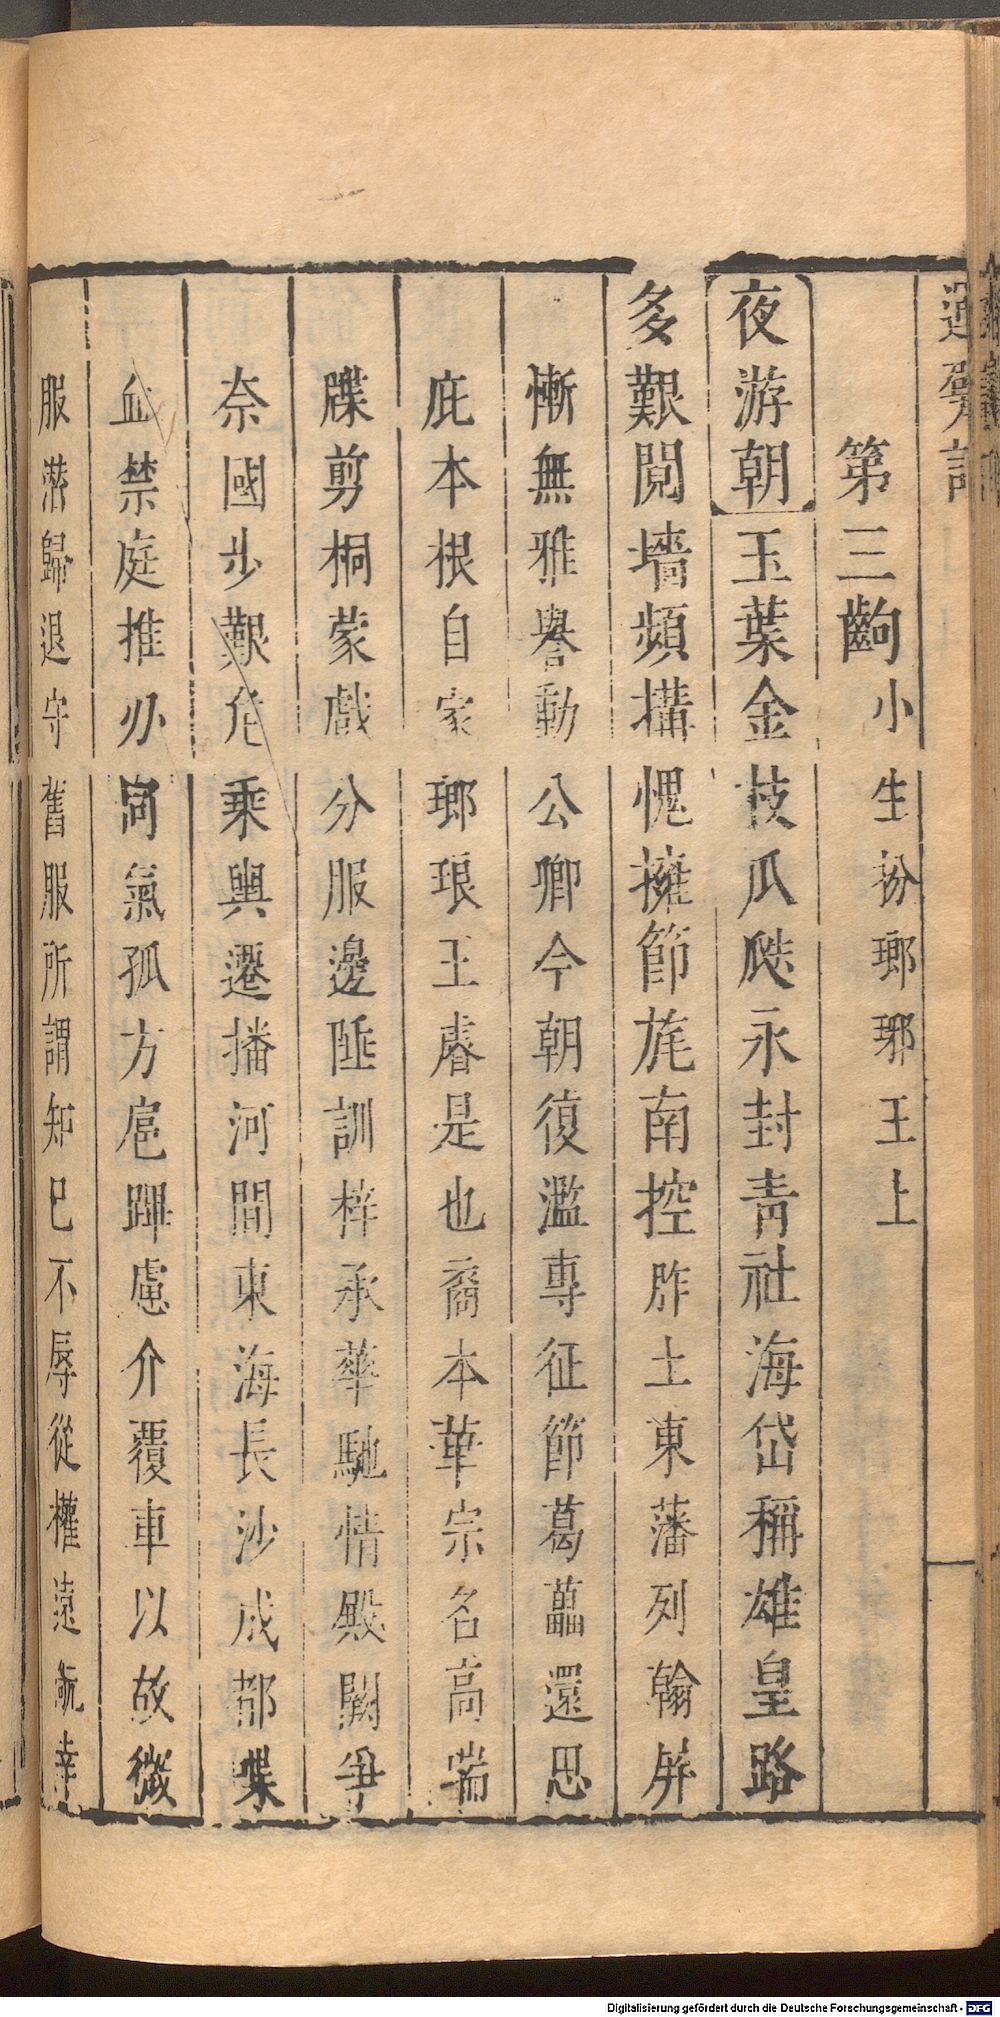 運甓記
第三齣小生扮瑯琊王上
夜游朝玉葉金枝瓜瓞永封青社海岱稱雄皇路
多艱鬩墻頻搆愧擁節旄南控胙土東藩列翰屏
慚無雅譽動公卿今朝復濫專征節葛藟還思
庇本根自家瑯琅王睿是也裔本華宗名高喘
牒剪桐蒙戲分服邊陲訓梓承華馳情殿闕爭
奈國步艱危乘輿遷播河間東海長沙成都喋
血禁庭推刅同氣孤方扈蹕慮介覆車以故微
服潛歸退守舊服所謂知巳不辱從權遠祸幸
Digitalisierung gefördert durch die Deutsche Forschungsgemeinschaft - DFG